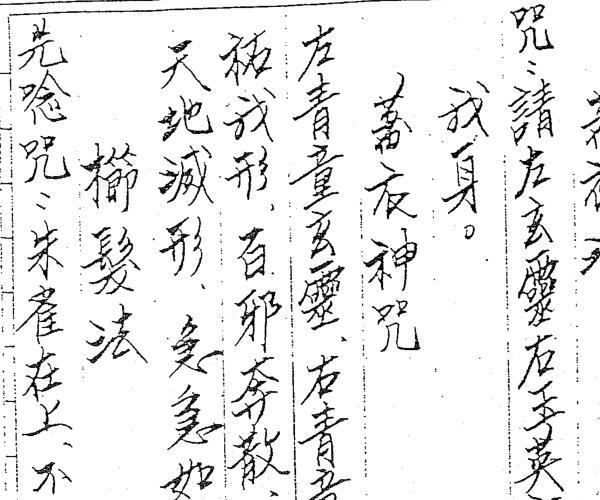 咒：請左玄靈右玉英
我身。
著衣神咒
左青童玄靈、右青童
祐我形、百邪奔散、
天地滅形、急急如
櫛髮法
先唸咒：朱雀在上、不